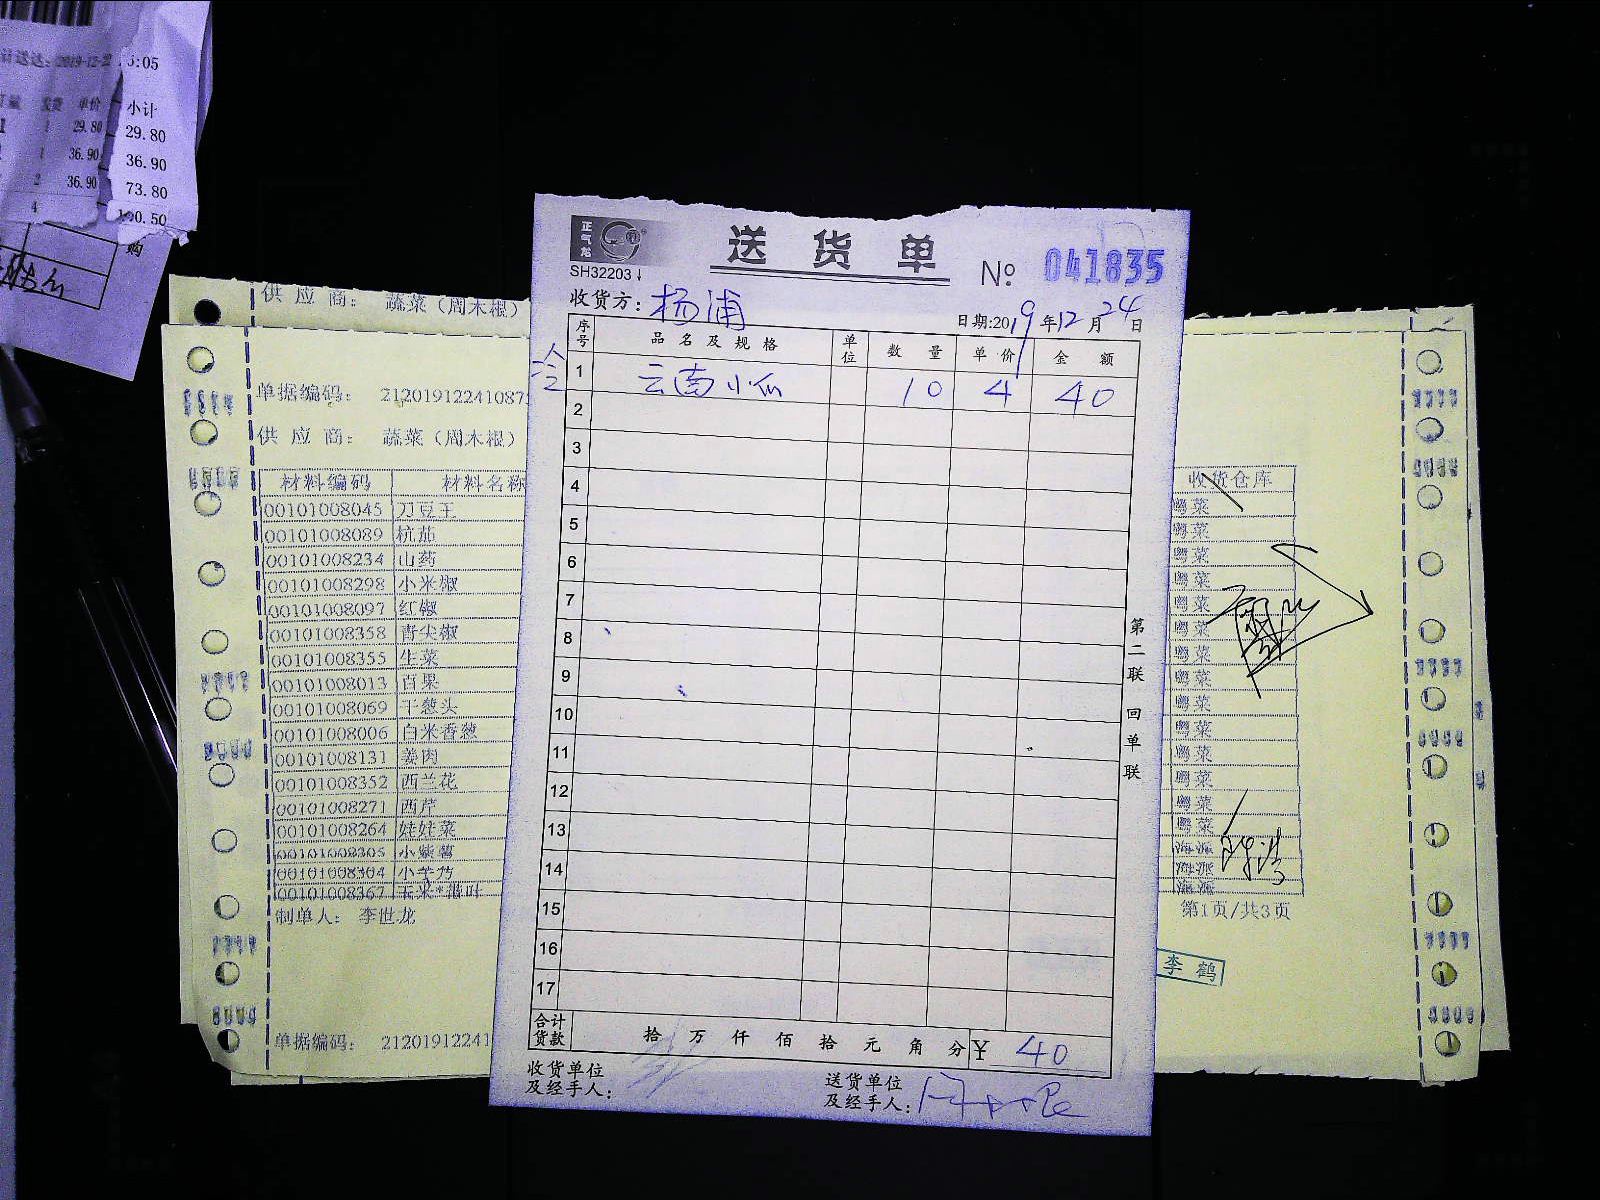 2019-12-22
5:05
单价
小计
29.80
29.80
1
36.90
36.90
2
36.90
73.80
4
购
供 应 商: 蔬菜(周木根)
单据编码:
供 应 商: 蔬菜(周木根)
材料编码 材料名称
00101008045 刀豆王
00101008089 杭茄
00101008234 山药
00101008298 小米椒
00101008097 红椒
00101008358 青尖椒
00101008355 生菜
00101008013 百果
00101008069 干葱头
00101008006 白米香葱
00101008131 姜肉
00101008352 西兰花
00101008271 西芹
00101008264 娃娃菜
00101008305 小紫薯
00101008304 小芋艿
00101008367
制单人: 李世龙
单据编码: 21201912241
正气龙
SH32203↓
送 货 单
№ 041835
收货方: 杨浦
日期:2019年12月24日
序号 品 名 及 规 格 单位 数 量 单 价 金 额
冷
1 云南小瓜 10 4 40
2
3
4
5
6
7
8
9
10
11
12
13
14
15
16
17
合计货款 拾 万 仟 佰 拾 元 角 分 ¥ 40
收货单位
及经手人:
送货单位
及经手人:
第二联 回单联
收货仓库
粤菜
粤菜
粤菜
粤菜
粤菜
粤菜
粤菜
粤菜
粤菜
粤菜
粤菜
粤菜
粤菜
粤菜
海派
海派
海派
第1页/共3页
李 鹤